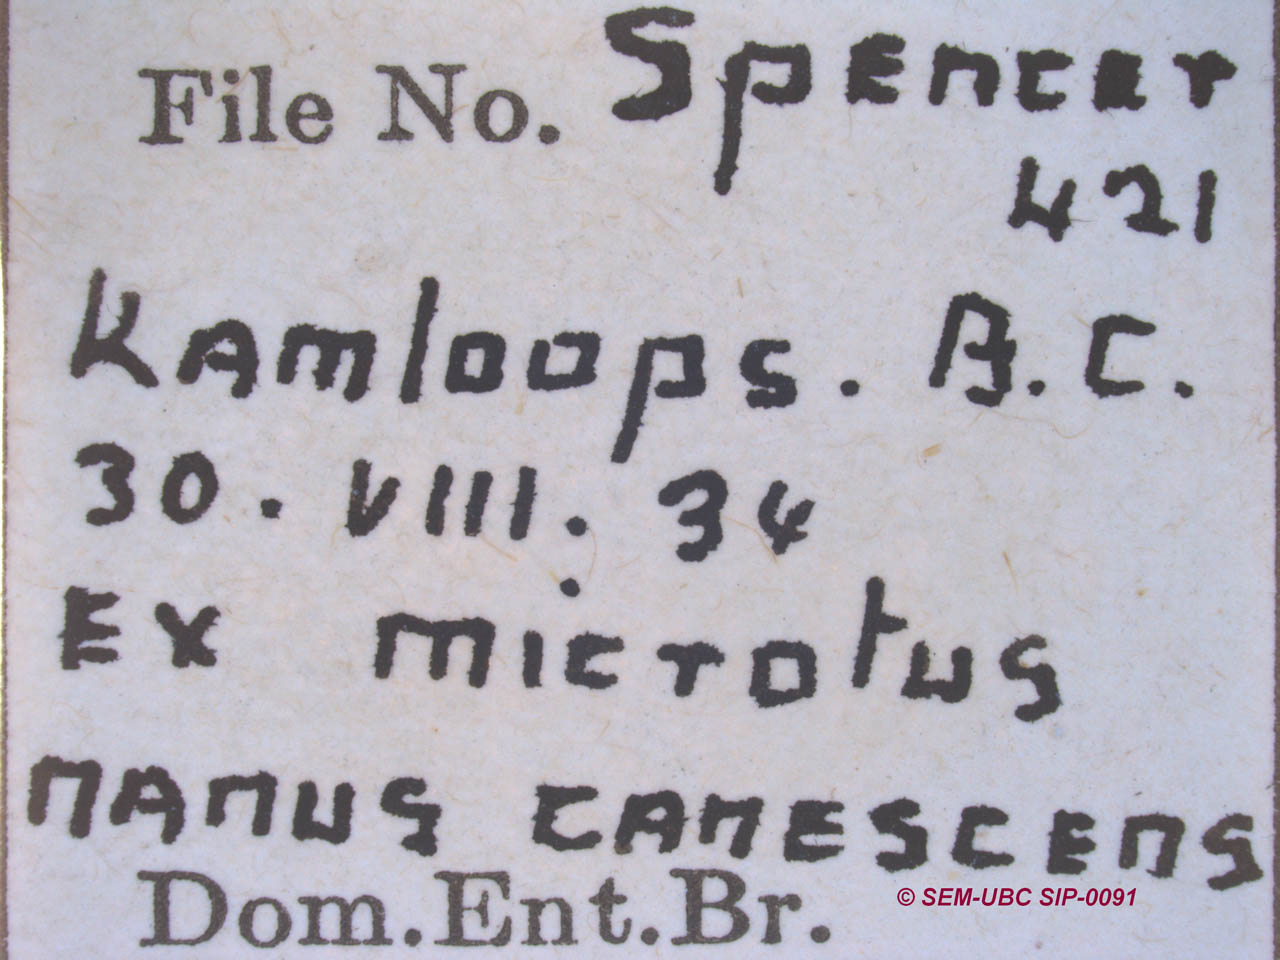 File No. Spencer
421
Kamloops. B.C.
30. VIII. 34
Ex microtus
nanus canescens
Dom.Ent.Br.
© SEM-UBC SIP-0091